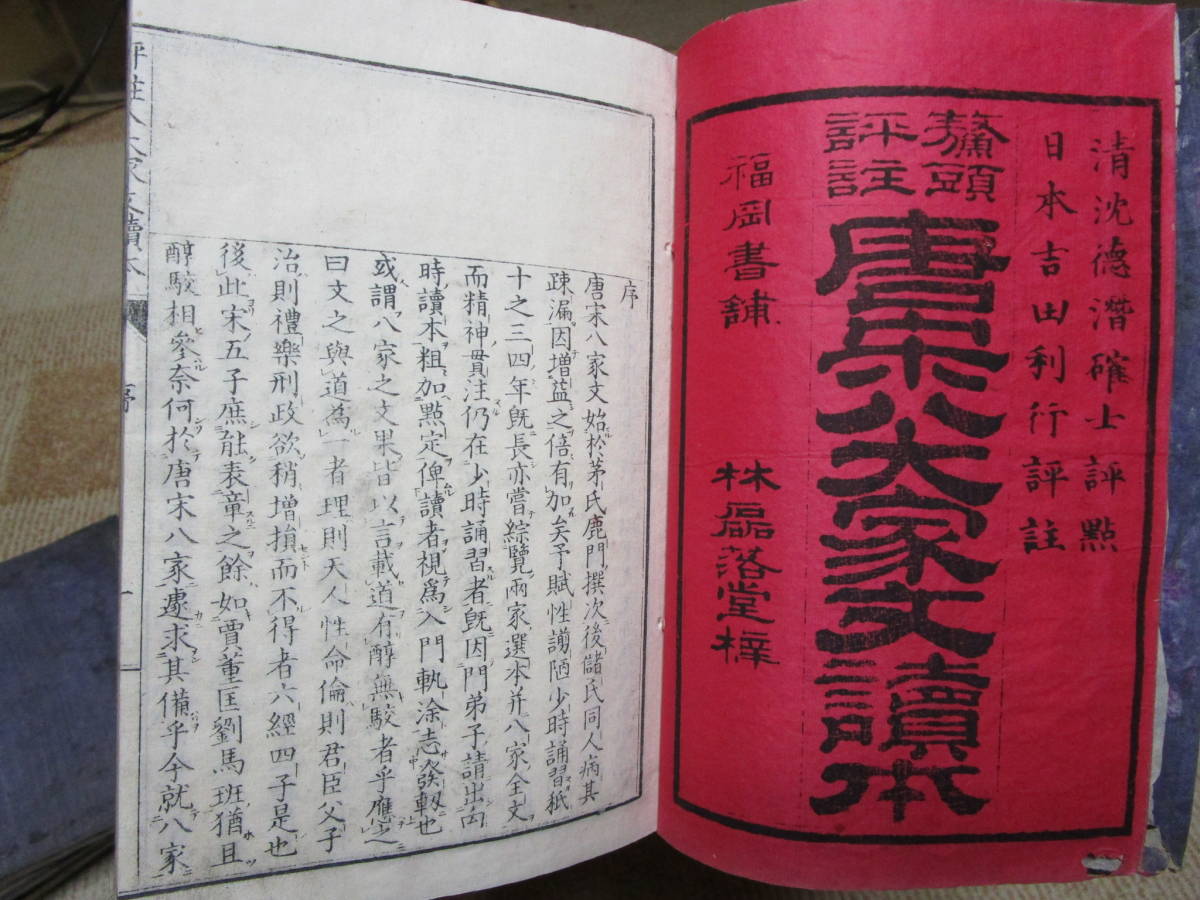 清沈德潛確士評點
日本吉田利行評註
鰲頭
評註
唐宋八大家文讀本
福岡書舗
林磊落堂梓
序
唐宋八家文始於茅氏鹿門撰次後儲氏同人病其
疎漏因增益之倍有加矣予賦性謭陋少時誦習秖
十之三四年既長亦嘗綜覽兩家選本并八家全文
而精神貫注仍在少時誦習者既因門弟子請出向
時讀本粗加點定俾讀者視爲入門軌涂志發軔也
或謂八家之文果皆以言載道有醇無駁者乎應之
曰文之與道為一者理則天人性命倫則君臣父子
治則禮樂刑政欲稍增損而不得者六經四子是也
後此宋五子庶能表章之餘如賈董匡劉馬班猶且
醇駁相參奈何於唐宋八家遽求其備乎今就八家
評註八大家文讀本
序
一